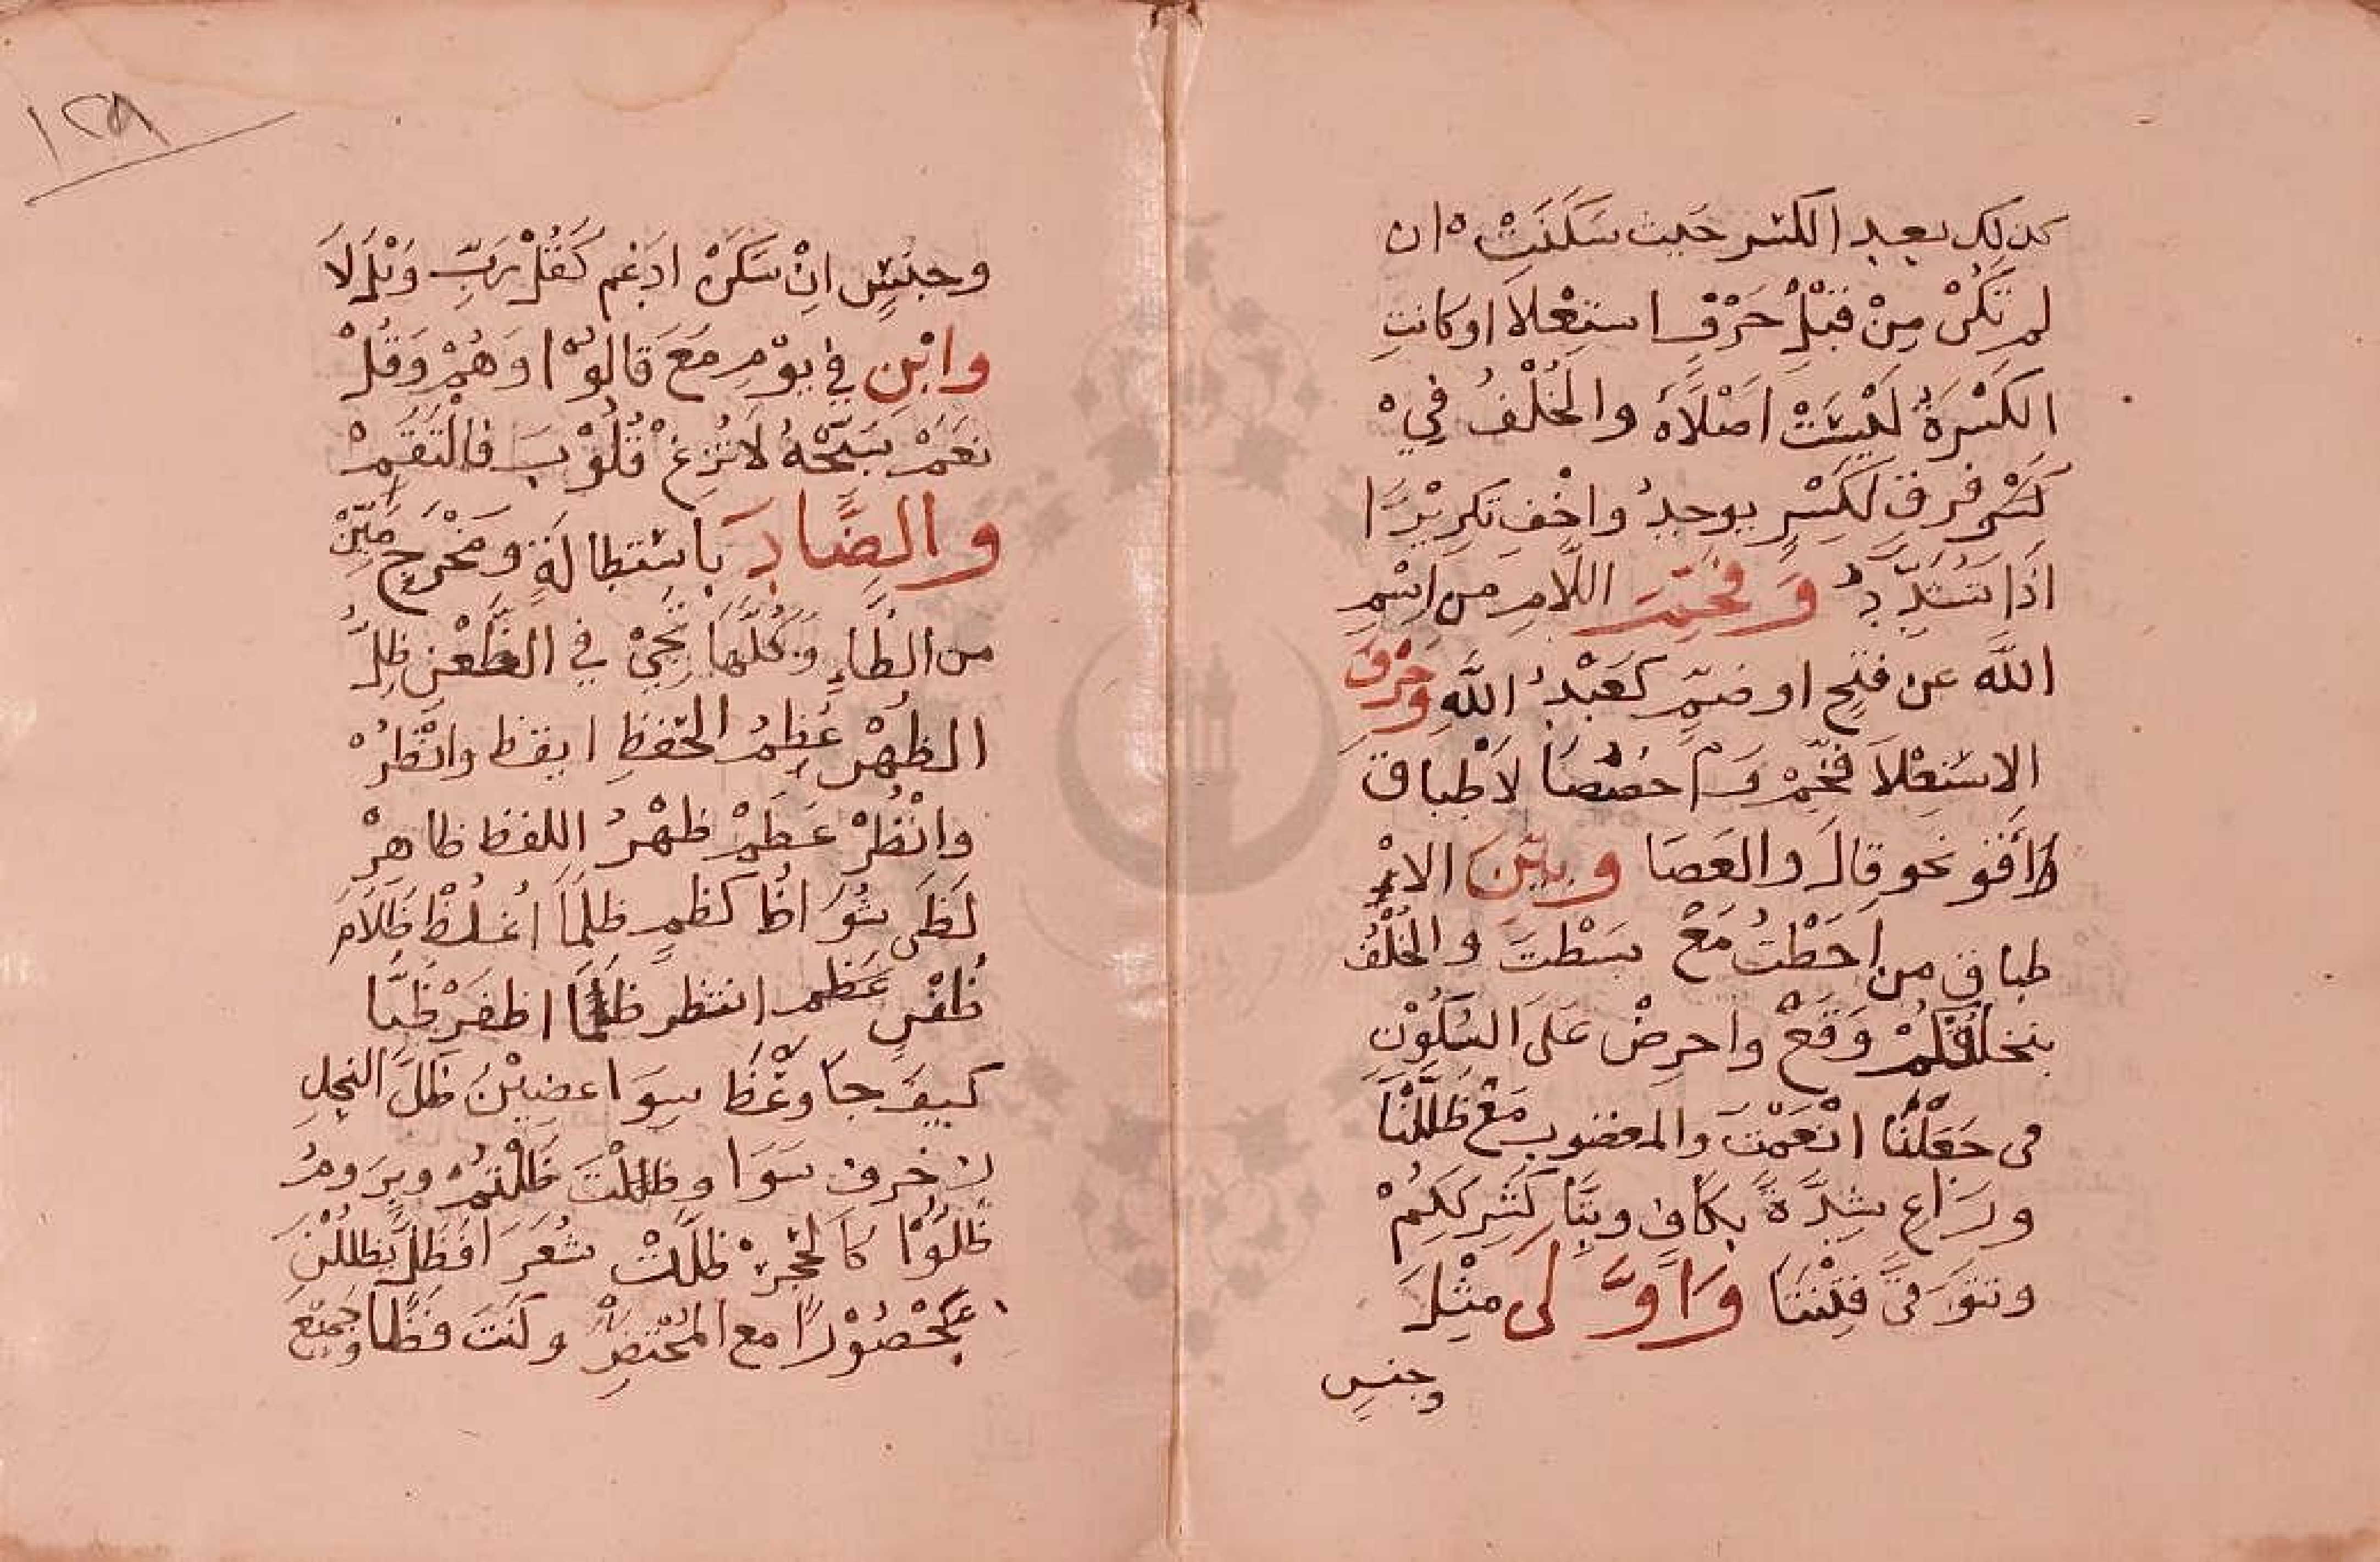 كذلك بعد الكسر حيث سكنت ان
لم تكن من قبل حرف استعلا او كانت
الكسرة ليست اصلا والخلف في
كسر فرق لكسر يوجد واخف تكريرا
اذا تشدد وفخم اللام من اسم
الله عن فتح او ضم كعبد الله وحرف
الاستعلا فخم و م اخصصا لاطباق
طا أقو نحو قال والعصا وبين الا
طباق من احطت مع بسطت والخلف
بنخلقكم وقع واحرص على السكون
في جعلنا انعمت والمغضوب مع ظللنا
وراع شدة بكاف وبتا كشرككم
وتتوفى فتنتا واو لى مثل
وجنس
١٢٩
وجنس ان سكن ادغم كقل رب وبل لا
وابن في يوم مع قالوا وهم وقل
نعم سبحه لا تزغ قلوب فالتقم
والضاد باستطالة ومخرج ميز
من الظاء وكلها تجي في الظعن ظل
الظهر عظم الحفظ ايقظ وانظر
وانظر عظم ظهر اللفظ ظاهر
لظى شواظ كظم ظلما اغلظ ظلام
ظفر عظم انتظر ظلما اظفر ظبا
كيف جا وعظ سوا عضين ظل النحل
ن خرف سوا وظلت ظلتم وبروم
ظلوا كالحجر ظلت شعرا فظل يظللن
محضورا مع المحتضر وكنت فظا وجميع